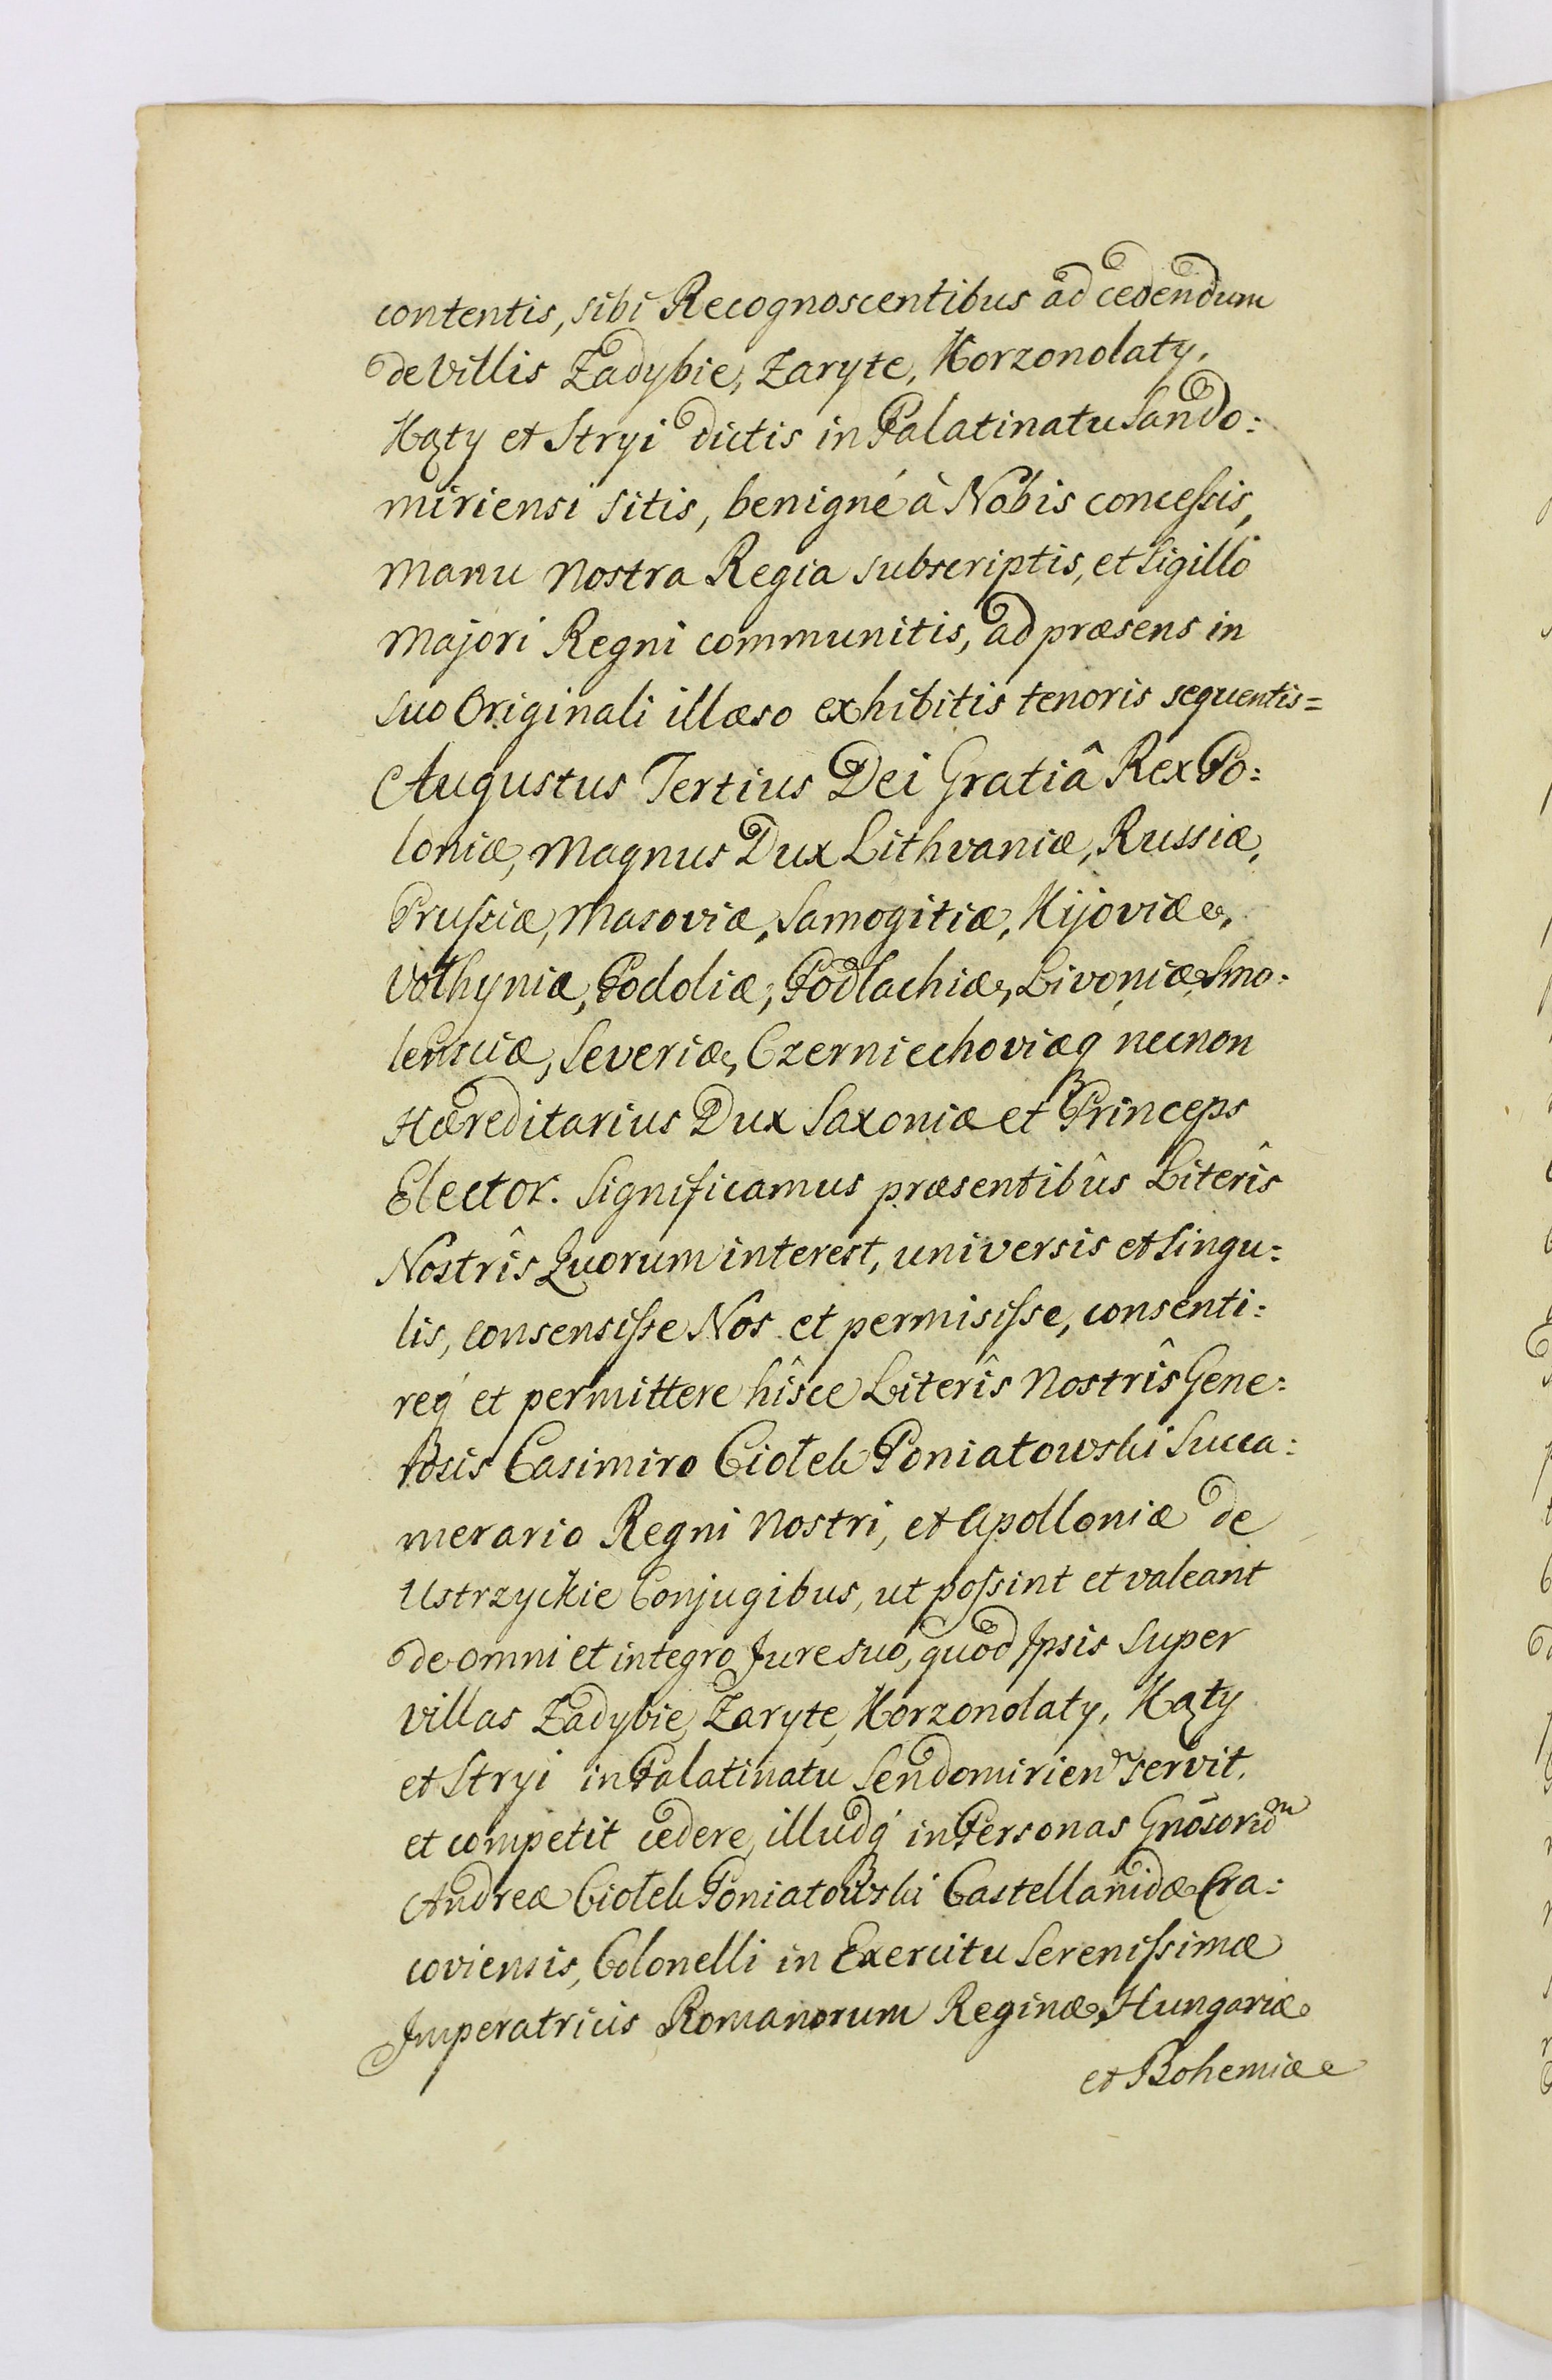 contentis, sibi Recognoscentibus ad cedendum
de Villis Zadybie, Zaryte, Korzonolaty,
Kąty et Stryi dictis in Palatinatu Sando:
miriensi sitis, benigné à Nobis conceſsis,
manu nostra Regia subscriptis, et Sigillo
Majori Regni communitis, ad præsens in
suo Originali illæso exhibitis tenoris sequentis=
Augustus Tertius Dei Gratiâ Rex Po:
loniæ, Magnus Dux Lithvaniæ, Russiæ,
Pruſsiæ, Masoviæ, Samogitiæ, Kijoviæ,
Volhyniæ, Podoliæ, Podlachiæ, Livoniæ, Smo:
lensciæ, Severiæ, Czerniechoviæq necnon
Hæreditarius Dux Saxoniæ et Princeps
Elector. Significamus præsentibûs Literîs
Nostrîs Quorum interest, universis et singu:
lis, consensiſse Nos et permisiſse, consenti:
req́ et permittere hîsce Literîs Nostrîs Gene:
rosis Casimiro Ciołek Poniatowski Succa:
merario Regni Nostri, et Apolloniæ de
Ustrzyckie Conjugibus, ut poſsint et valeant
de omni et integro Jure suo, quod Ipsis super
villas Zadybie, Zaryte, Korzonolaty, Kąty
et Stryi in Palatinatu Sendomirien servit,
et competit cedere, illudq́ in Personas Gnōsorum
Andreæ Ciołek Poniatowski Castellanidæ Cra:
coviensis, Colonelli in Exercitu Sereniſsimæ
Imperatricis Romanorum Reginæ, Hungariæ
et Bohemiæ